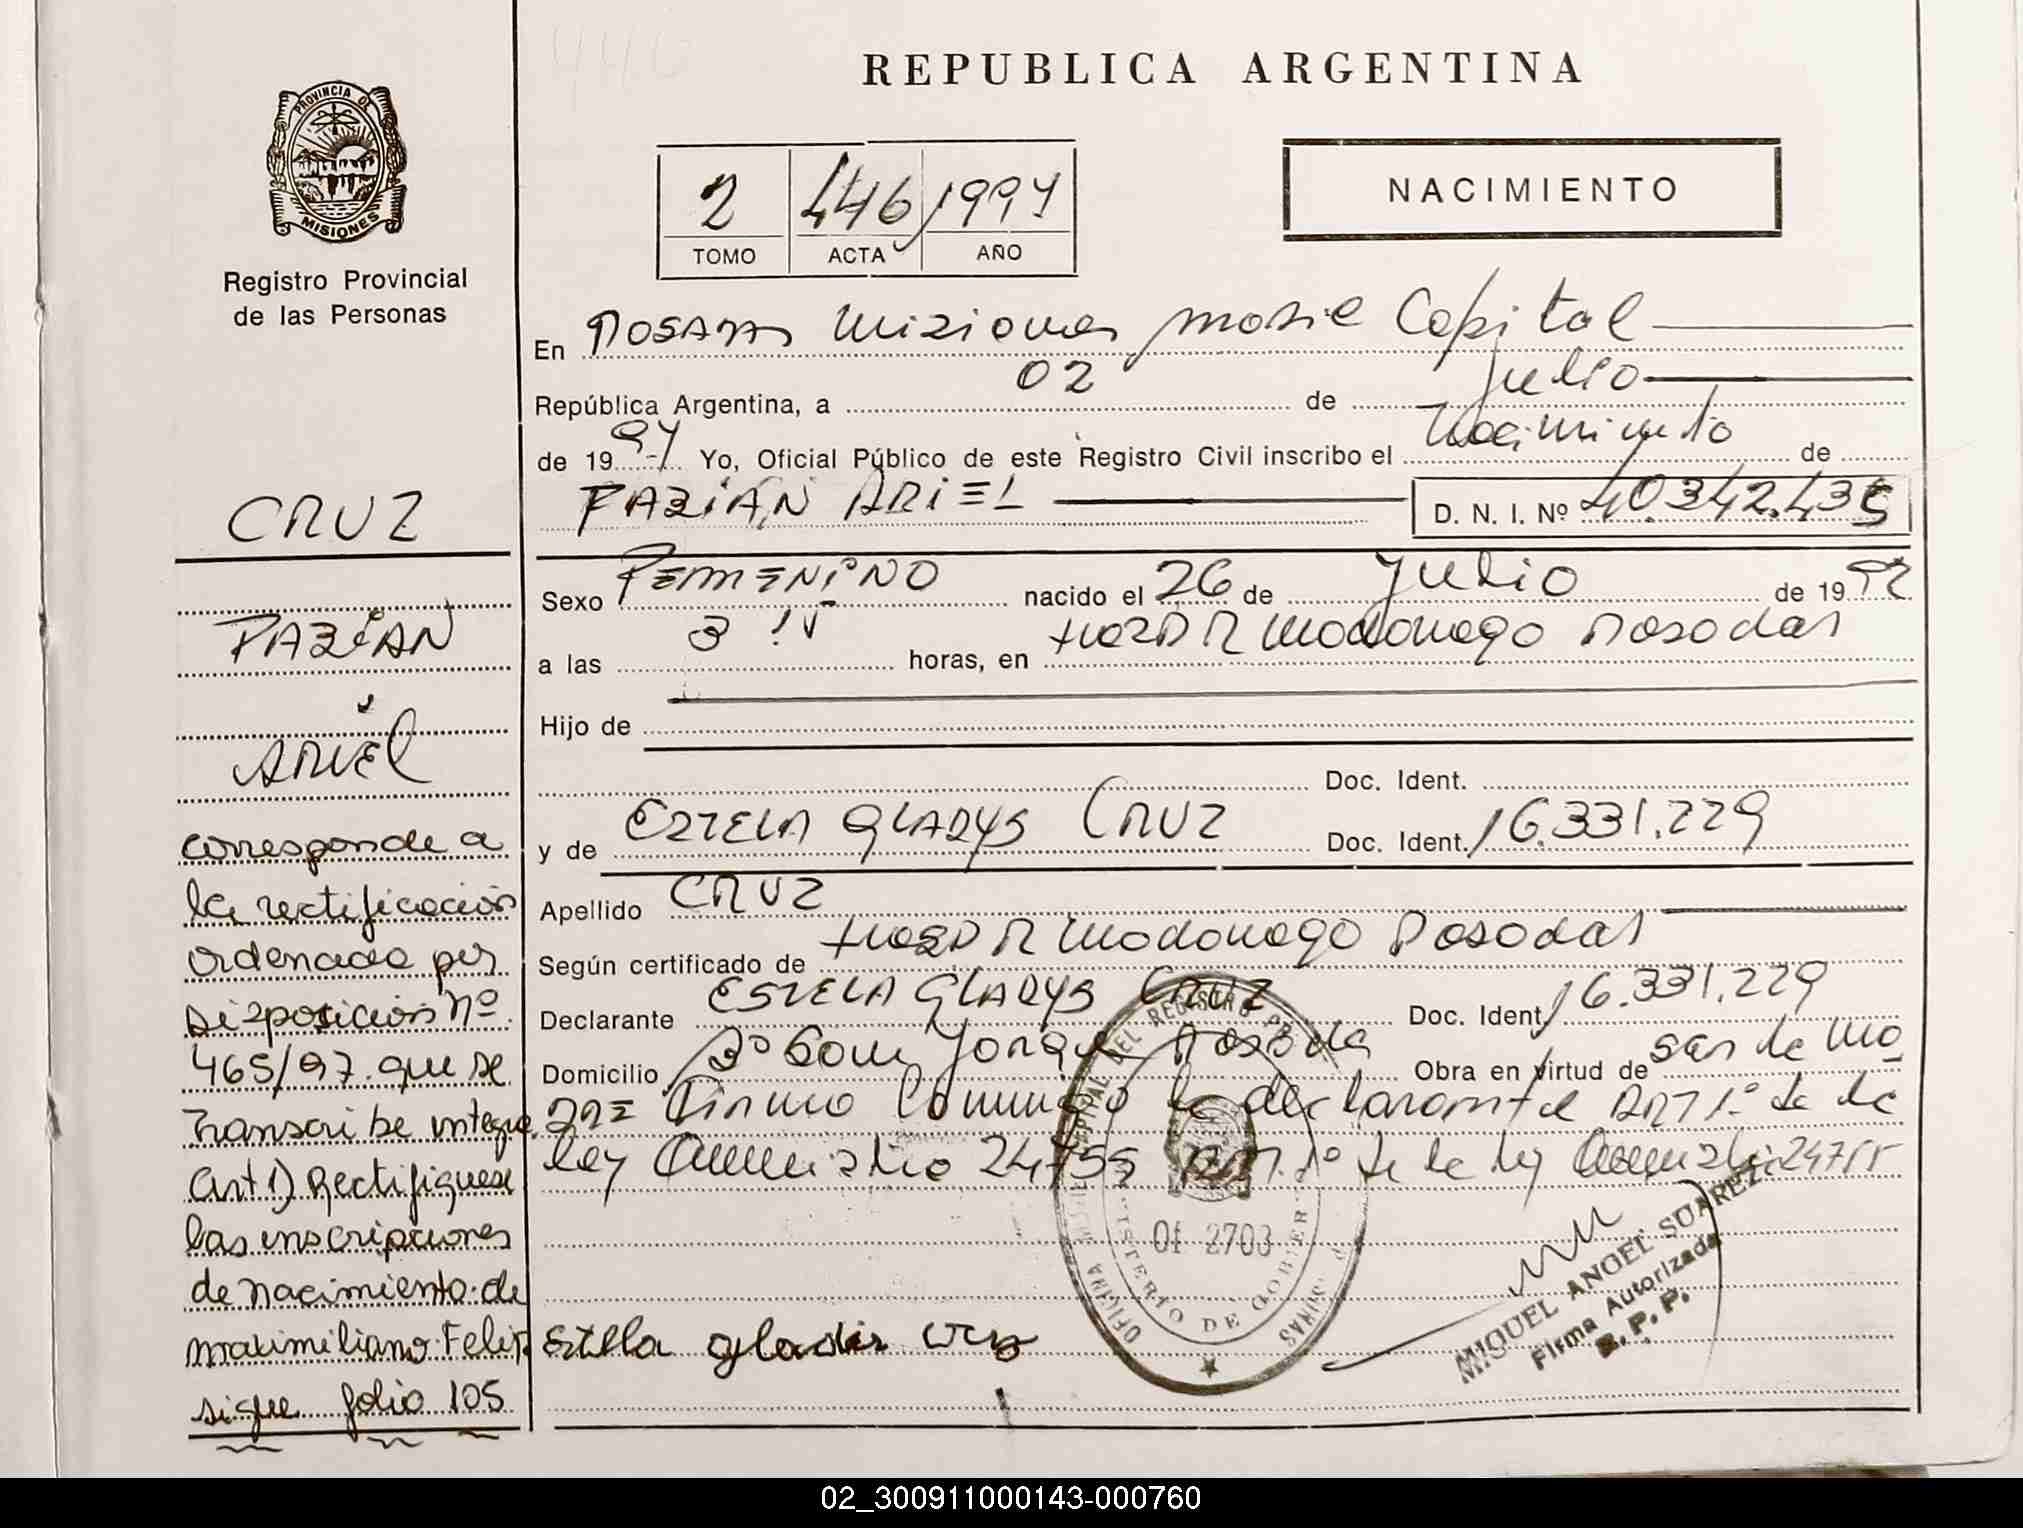 REPUBLICA ARGENTINA
PROVINCIA DE
MISIONES
Registro Provincial
de las Personas
2 446 1997
TOMO ACTA AÑO
NACIMIENTO
En Misiones Capital
República Argentina, a 02 de Julio
de 1997 Yo, Oficial Público de este Registro Civil inscribo el Nacimiento de
FABIAN ARIEL D. N. I. Nº 40.342.435
Sexo FEMENINO nacido el 26 de Julio de 1992
a las 3 horas, en Posadas
Hijo de
Doc. Ident.
y de ESTELA GLADYS CRUZ Doc. Ident. 16.331.229
Apellido CRUZ
Según certificado de Posadas
Declarante ESTELA GLADYS CRUZ Doc. Ident. 16.331.229
Domicilio Obra en virtud de
la declarante ART 1º de la
ley 24755 ART. 1º de la ley 24755
Estella gladis cruz
CRUZ
FABIAN
ARIEL
corresponde a
la rectificación
ordenada por
Disposición Nº
465/97. que se
Transcribe integra.
Art 1) Rectifiquese
las inscripciones
de nacimiento de
maximiliano Felix
sigue folio 105
OFICINA
DEL REGISTRO
MINISTERIO DE GOBIERNO
Of 2703
MIGUEL ANGEL SUAREZ
Firma Autorizada
R. P. P.
02_300911000143-000760